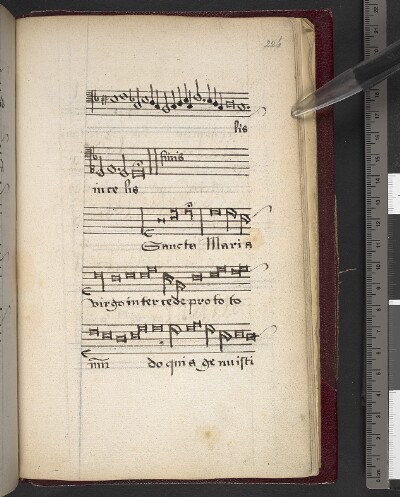 226
lis
finis
in ce lis
Sancta Maria
virgo in ter cede pro to to
do quia ge nu isti